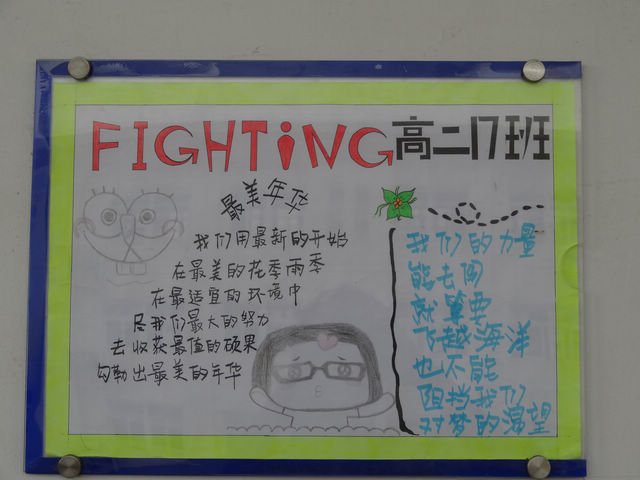 FIGHTiNG高二17班
最美年华
我们用最新的开始
在最美的花季雨季
在最适宜的环境中
尽我们最大的努力
去收获最值的硕果
勾勒出最美的年华
我们的力量
能去闯
就算要
飞越海洋
也不能
阻挡我们
对梦的渴望